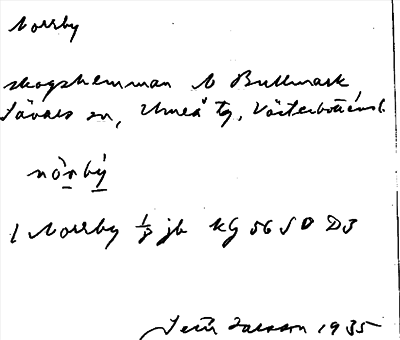 Norrby
skogshemman N Bullmark
Sävars sn, Umeå tg, Västerbottens l.
nòrbý
1 Norrby ½ jb KG 56 SO D3
Larsson 1935